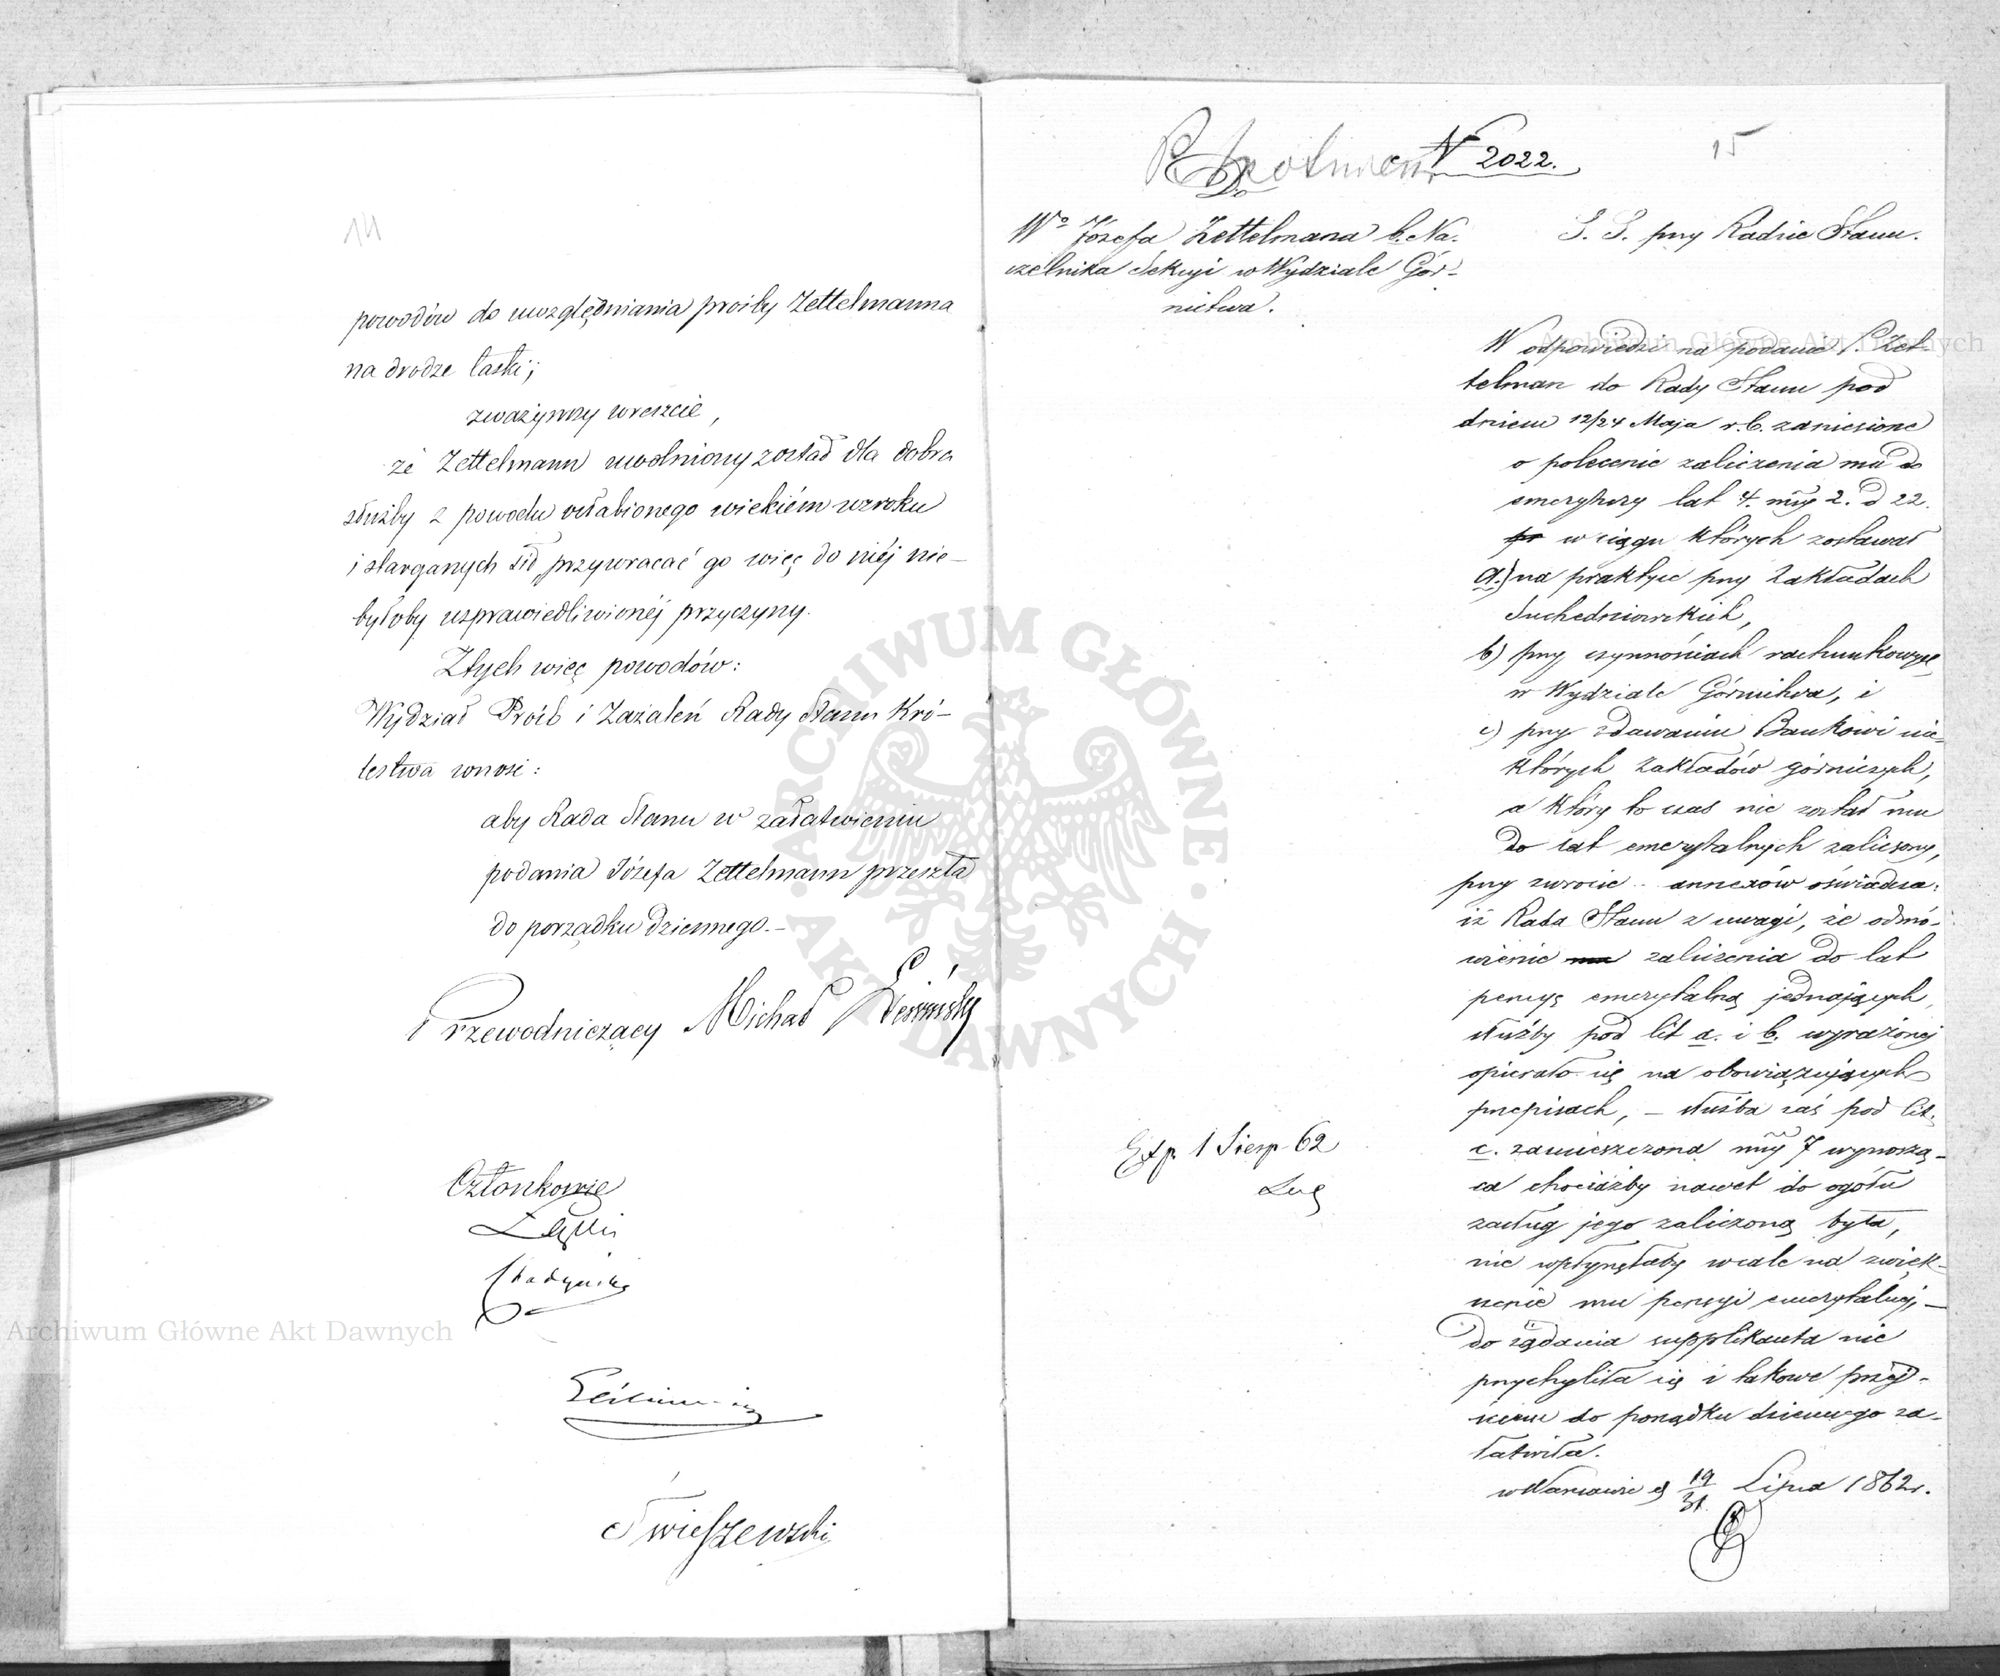 14
powodów do uwzględniania prośby Zettelmanna
na drodze łaski;
zważywszy wreszcie,
że Zettelmann uwolniony został dla dobra
służby z powodu osłabionego wiekiem wzroku
i starganych sił, przywracać go więc do niéj nie-
byłoby usprawiedliwionéj przyczyny.
Z tych więc powodów:
Wydział Próśb i Zażaleń Rady Stanu Kró-
lestwa wnosi:
aby Rada Stanu w załatwieniu
podania Józefa Zettelmann przeszła
do porządku dziennego.-
Przewodniczący Michał
Członkowie
Świeszewski
15
N 2022.
Do
Wo Józefa Zettelmana b. Na-
czelnika Sekcyi w Wydziale Gór-
nictwa.
S. S. przy Radzie Stanu.
W odpowiedzi na podanie P. Zet-
telman do Rady Stanu pod
dniem 12/24 Maja r. b. zaniesione
o polecenie zaliczenia mu do
emerytury lat 4. mcy 2. d 22.
w ciągu których zostawał
a.) na praktyce przy Zakładach
Suchedniowskich,
b) przy czynnościach rachunkowych
w Wydziale Górnictwa, i
c) przy zdawaniu Bankowi nie-
których zakładów górniczych,
a który to czas nie został mu
do lat emerytalnych zaliczony,
przy zwrocie annexów oświadcza:
iż Rada Stanu z uwagi, że odmó-
wienie zaliczenia do lat
pensyę emerytalną jednających,
służby pod lit a. i b. wyrażonej
opierało się na obowiązujących
przepisach, – służba zaś pod lit.
c. zamieszczona mcy 7 wynoszą-
ca chociażby nawet do ogółu
zasług jego zaliczoną była,
nie wpłynęłaby wcale na zwięk-
szenie mu pensyi emerytalnej, –
do żądania supplikanta nie
przychyliła się i takowe przej-
ściem do porządku dziennego za-
łatwiła.
w Warszawie d 19/31 Lipca 1862 r.
Exp. 1 Sierp 62
Archiwum Główne Akt Dawnych
Archiwum Główne Akt Dawnych
ARCHIWUM GŁÓWNE AKT DAWNYCH